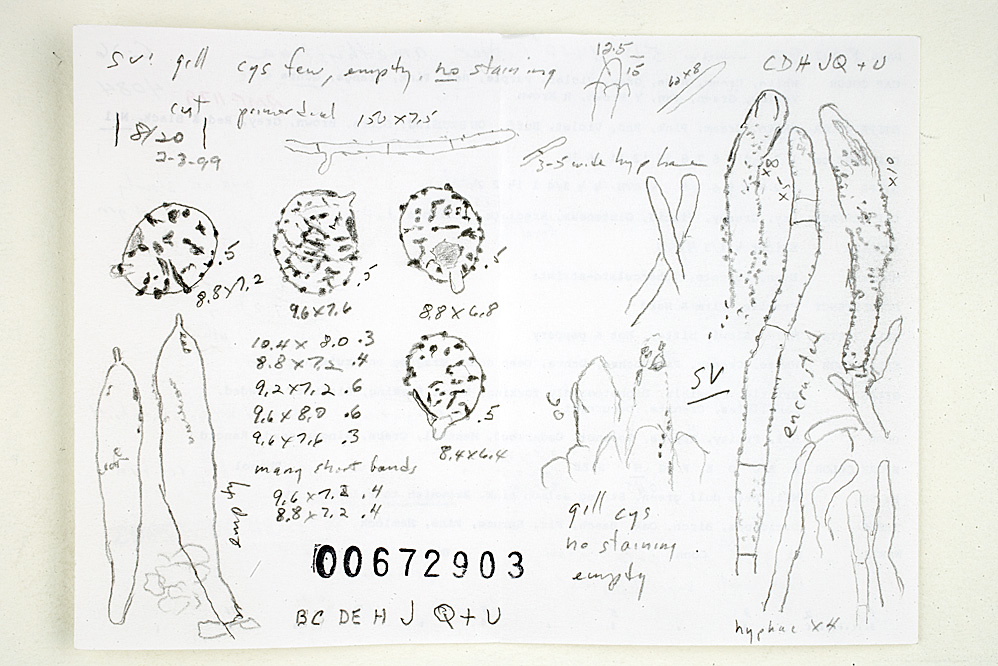 SV! gill cys few, empty, no staining
cut primordial 150 x 7.5
8/20
2-3-99
12.5
15
10 x 8
CDH JQ + U
3-5 wide hyphae
x8
x5
x10
.5
8.8 x 7.2
.5
9.6 x 7.6
.5
8.8 x 6.8
10.4 x 8.0 .3
8.8 x 7.2 .4
9.2 x 7.2 .6
9.6 x 8.0 .6
9.6 x 7.6 .3
many short bands
9.6 x 7.2 .4
8.8 x 7.2 .4
.5
8.4 x 6.4
SV
encrusted
gill cys
no staining
empty
00672903
BC DE H J Q + U
hyphae x 4